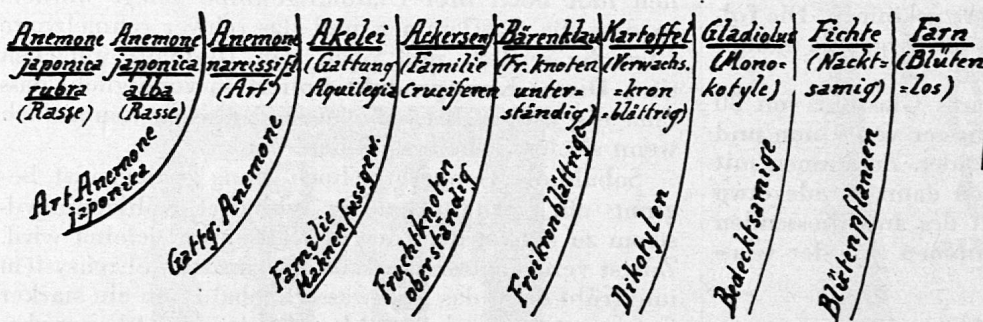 Anemone
japonica
rubra
(Rasse)
Anemone
japonica
alba
(Rasse)
Anemone
narcissifl.
(Art)
Akelei
(Gattung
Aquilegia)
Ackersenf
(Familie
Cruciferen)
Bärenklau
(Fr. knoten
unter=
ständig)
Kartoffel
(Verwachs.
=kron
=blättrig)
Gladiolus
(Mono=
kotyle)
Fichte
(Nackt=
samig)
Farn
(Blüten
=los)
Art Anemone
japonica
Gattg. Anemone
Familie
Hahnenfussgew.
Fruchtknoten
oberständig
Freikronblättrige
Dikotylen
Bedecktsamige
Blütenpflanzen